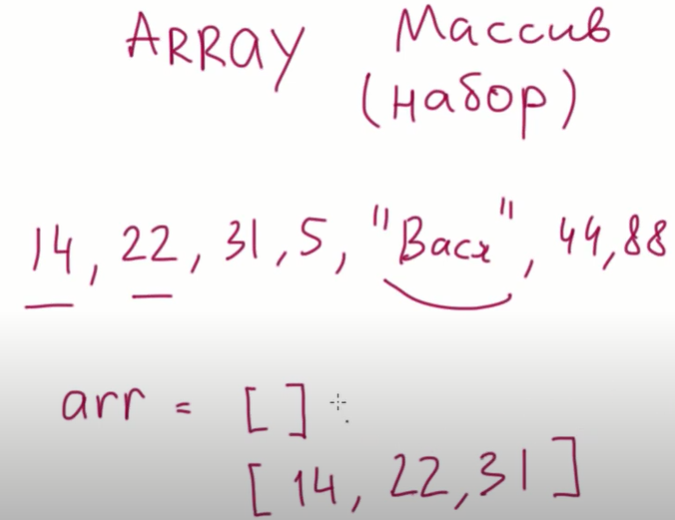 ARRAY Массив
(набор)
14, 22, 31, 5, "Вася", 44, 88
arr = [ ]
[ 14, 22, 31 ]